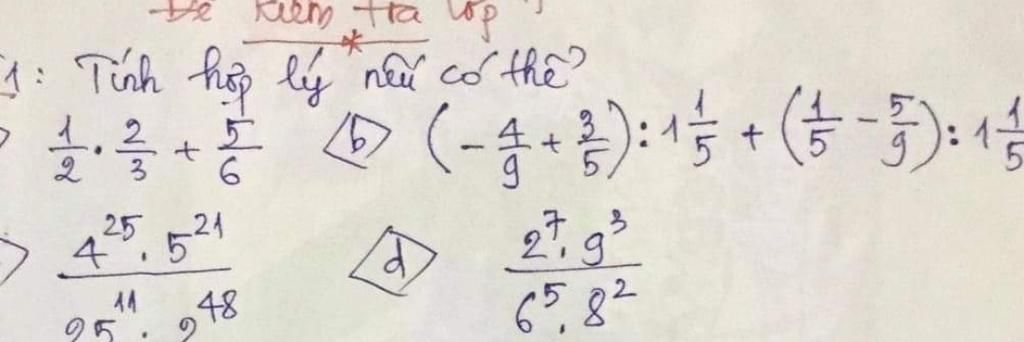 Đề kiểm tra lớp 7
1: Tính hợp lý nếu có thể
1/2 . 2/3 + 5/6 b (-4/9 + 3/5) : 1 1/5 + (1/5 - 5/9) : 1 1/5
4^25 . 5^21 / 25^11 . 2^48 d 2^7 . 9^3 / 6^5 . 8^2